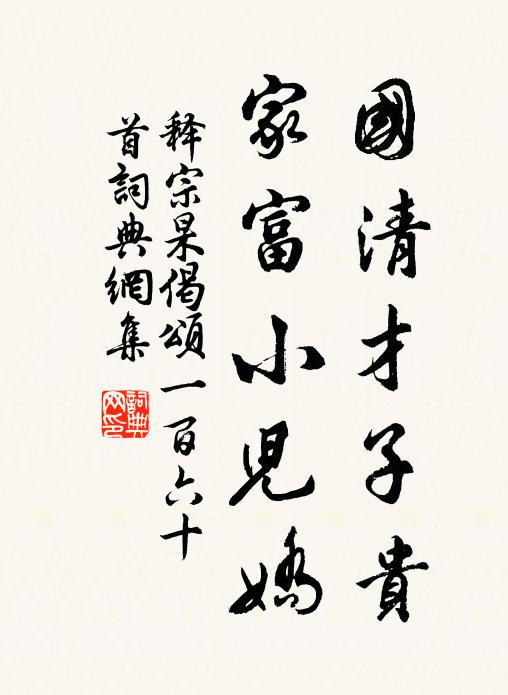 國清才子貴
家富小児嬌
释宗杲偈頌一百六十
首詞典網集
詞典
网印